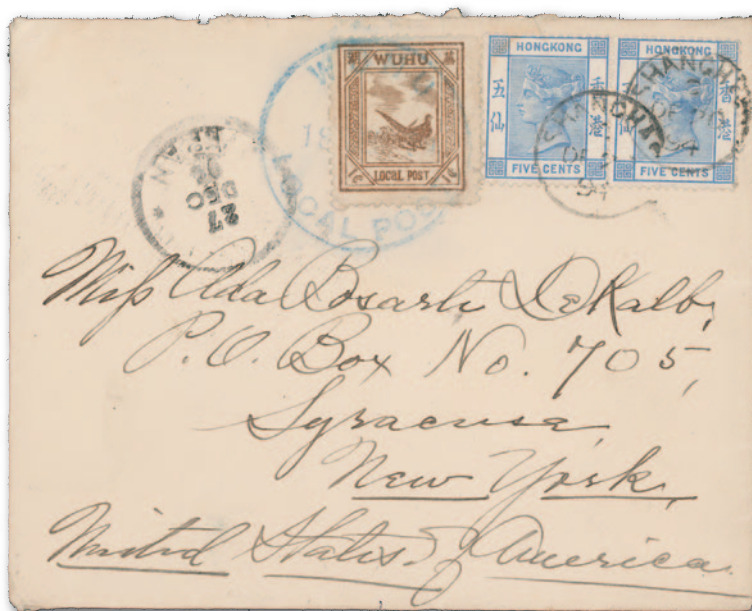 WUHU
LOCAL POST
HONGKONG
五仙
香港
FIVE CENTS
HONGKONG
仙
香港
FIVE CENTS
LOCAL POST
SHANGHAI
94
SHANGHAI
27
DEC
Miss Ada Bosarte DeKalb,
P.O. Box No. 705,
Syracuse,
New York,
United States of America.